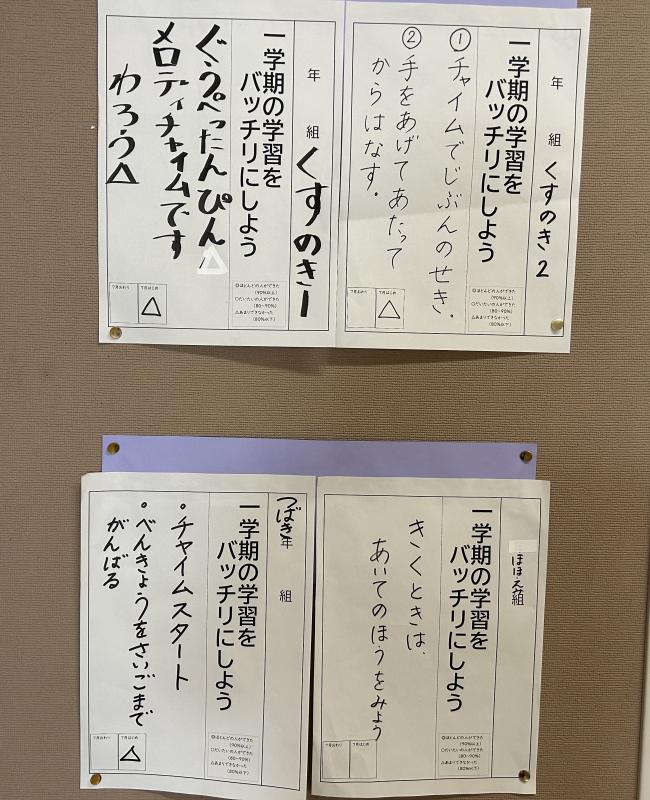 年 組 くすのき2
一学期の学習を
バッチリにしよう
① チャイムでじぶんのせき.
② 手をあげてあたって
からはなす.
7月おわり
7月はじめ
△
◎ほとんどの人ができた
(90%以上)
○だいたいの人ができた
(80~90%)
△あまりできなかった
(80%以下)
年 組 くすのき1
一学期の学習を
バッチリにしよう
ぐうぺったんぴん△
メロディチャイムです
わろう△
7月おわり
7月はじめ
△
◎ほとんどの人ができた
(90%以上)
○だいたいの人ができた
(80~90%)
△あまりできなかった
(80%以下)
ほほえ組
一学期の学習を
バッチリにしよう
きくときは、
あいてのほうをみよう
7月おわり
7月はじめ
◎ほとんどの人ができた
(90%以上)
○だいたいの人ができた
(80~90%)
△あまりできなかった
(80%以下)
つばき年 組
一学期の学習を
バッチリにしよう
・チャイムスタート
・べんきょうをさいごまで
がんばる
7月おわり
7月はじめ
△
◎ほとんどの人ができた
(90%以上)
○だいたいの人ができた
(80~90%)
△あまりできなかった
(80%以下)